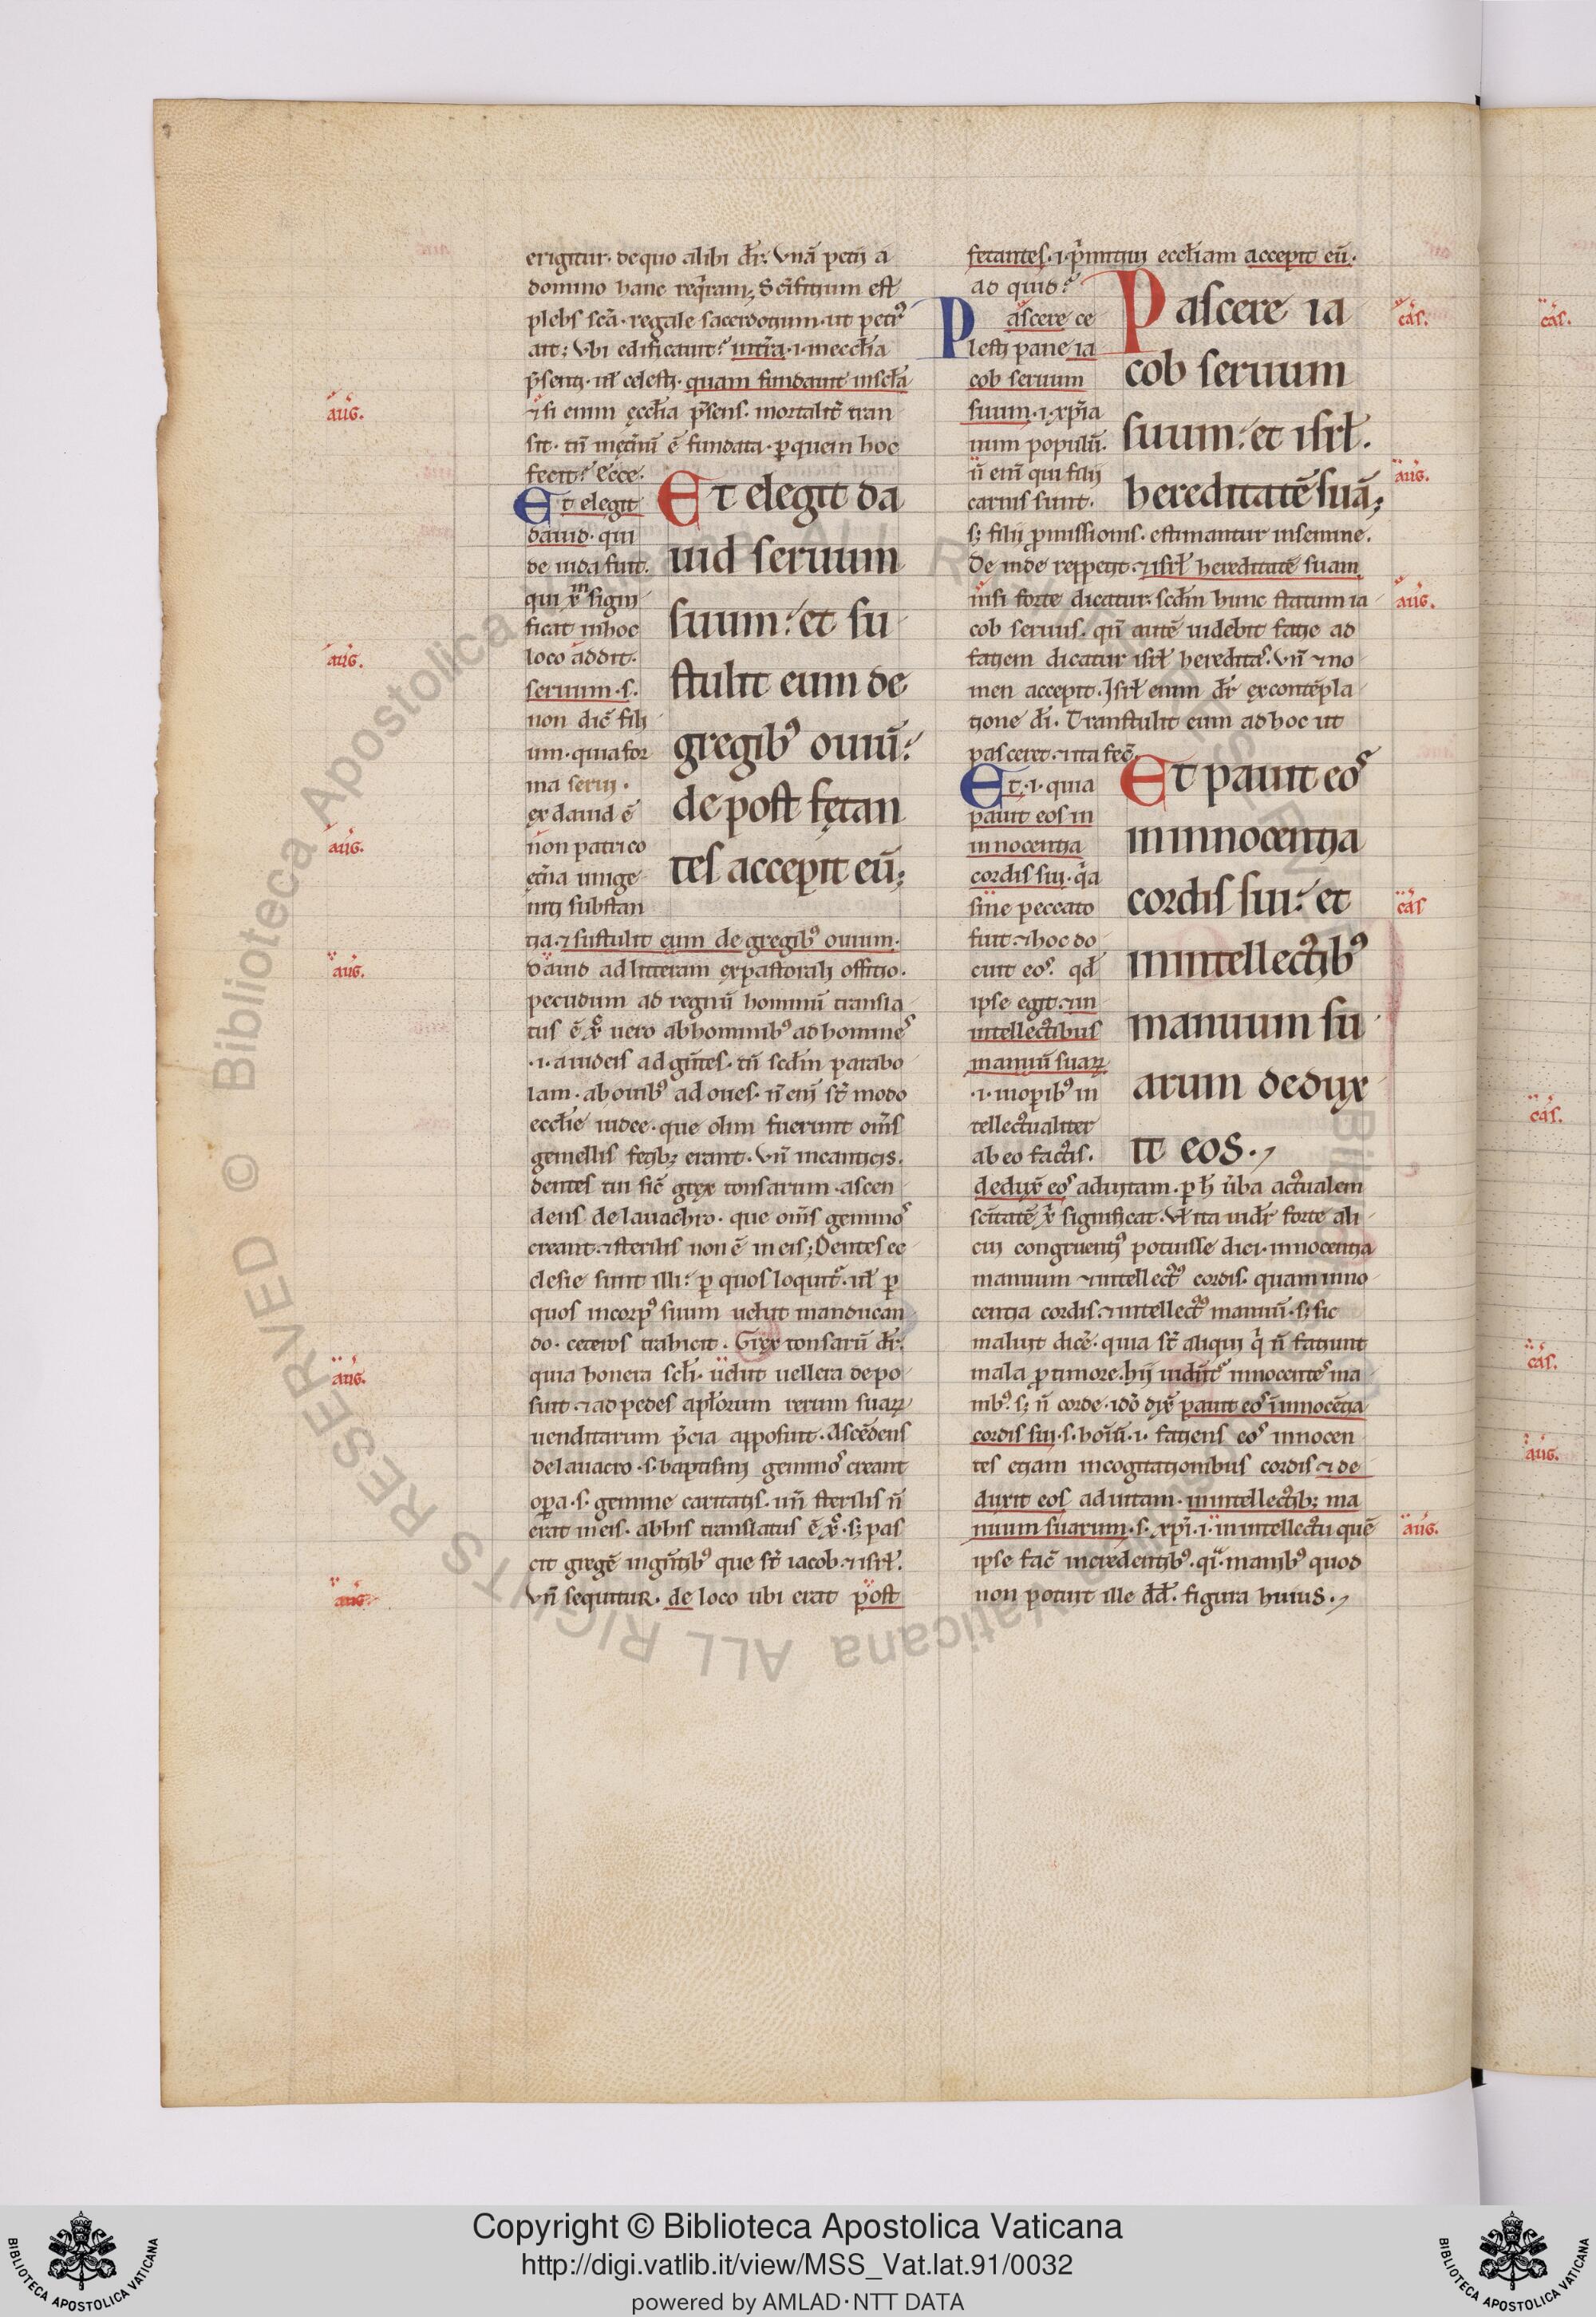 erigitur. de quo alibi dr̄. vnā petij a
domino hanc reqͥram; Scīfitium est
plebs scā. regale sacerdotium. ut petrꝰ
ait: Vbi edificauit? in tr̄a .i. in eccl̄ia
p̄senti. ul̄ celesti. quam fundauit in scl̄a
aug̃.
⁊ si enim ęccl̄ia p̄sens. mortalit̄ tran
sit. tn̄ in ęt̄nū ē fundata. ꝑ quem hoc
fecit? ecce.
Et elegit
dauid. qui
de iuda fuit.
qui xᵐ signi
ficat in hoc
loco addit.
aug̃.
seruum .s.
non dic̄ fili
um. quia for
ma serui.
ex dauid ē
non patri co
aug̃.
ęt̄na unige
niti substan
Et elegit da
uid seruum
suum: et su
stulit eum de
gregibꝰ ouiū:
de post fętan
tes accepit eū;
tia. ⁊ sustulit eum de gregibꝰ ouium.
aug̃.
dauid ad litteram ex pastorali offitio.
pecudum ad regnū hominū transla
tus ē. xͦ uero ab hominibꝰ ad homines
.i. a iudeis ad gn̄tes. tn̄ scd̄m parabo
lam. ab ouibꝰ ad oues. n̄ eni s̄t modo
eccl̄ie iudee. que olim fuerunt om̄s
gemellis fetib; erant. Vn̄ in canticis.
dentes tui sic̄ grex tonsarum. ascen
dens de lauachro. que om̄s geminos
creant. ⁊ sterilis non ē in eis; Dentes ec
clesie sunt illi: ꝑ quos loquit᷑. ul̄ ꝑ
quos in corpꝰ suum uelut manducan
do. ceteros trahicit. Grex tonsarū dr̄.
aug̃.
quia honera scl̄i. uelut uellera depo
suit. ⁊ ad pedes apl̄orum rerum suaꝝ
uenditarum p̄cia apposuit. Ascēdens
de lauacro .s. baptismi geminos creant
opa .s. gemine caritatis. un̄ sterilis n̄
erat in eis. ab his translatus ē xͦ. s; pas
cit gregē in gn̄tibꝰ que s̄t iacob. ⁊ isrl̄.
aug̃.
Vn̄ sequitur. de loco ubi erat post
fetantes .i. pͥmitiui eccl̄iam accepit eū.
ad quid?
Pascere ce
lesti pane ia
cob seruum
suum .i. xp̄ia
num populū.
n̄ eni qui filij
carnis sunt.
Pascere ia
cob seruum
suum: et isrl̄.
hereditatē suā;
cas̃.
aug̃.
s; filij ꝓmissionis. estimantur in semine.
De inde reppetit. ⁊ isrl̄ hereditatē suam.
aug̃.
nisi forte dicatur: scd̄m hunc statum ia
cob seruus. qn̄ autē uidebit fatie ad
fatiem dicatur isrl̄ hereditas. Vn̄ ⁊ no
men accepit. Isrl̄ enim dr̄ ex contēpla
tione dī. Transtulit eum ad hoc ut
pasceret. ⁊ ita fec̄.
Et .i. quia
pauit eos in
innocentia
cordis sui. qͥa
sine peccato
cas̃
fuit. ⁊ hoc do
cuit eos. qd̄
ipse egit. ⁊ in
intellectibus
manuū suaꝝ
.i. in opibꝰ in
tellectualiter
ab eo factis.
Et pauit eos
in innocentia
cordis sui: et
in intellectibꝰ
manuum su
arum dedux
it eos.
deduxͭ eos ad uitam. ꝑ h̄ ūba actualem
scītatē xͥ significat. Vl̄ ita uidr̄ forte ali
cui congruentiꝰ potuisse dici. innocentia
manuum ⁊ intellectꝰ cordis. quam inno
centia cordis. ⁊ intellectꝰ manuū. s; sic
maluit dicē. quia s̄t aliqui qͥ n̄ fatiunt
mala ꝓ timore. hij uidēt᷑ innocentes ma
nibꝰ. s; n̄ corde. idō dixͭ pauit eos ī innocētia
cordis sui .s. hoīū .i. fatiens eos innocen
tes etiam in cogitationibus cordis ⁊ de
duxit eos ad uitam. in intellectib; ma
nuum suarum .s. xp̄i .i. in intellectu quē
aug̃.
ipse fac̄ in credentibꝰ. qͥ. manibꝰ quod
non potuit ille dd̄. figura huius.
cas̃.
cas̃.
cas̃.
aug̃.
© Biblioteca Apostolica Vaticana ALL RIGHTS RESERVED
Copyright © Biblioteca Apostolica Vaticana
http://digi.vatlib.it/view/MSS_Vat.lat.91/0032
powered by AMLAD·NTT DATA
BIBLIOTECA APOSTOLICA VATICANA
BIBLIOTECA APOSTOLICA VATICANA